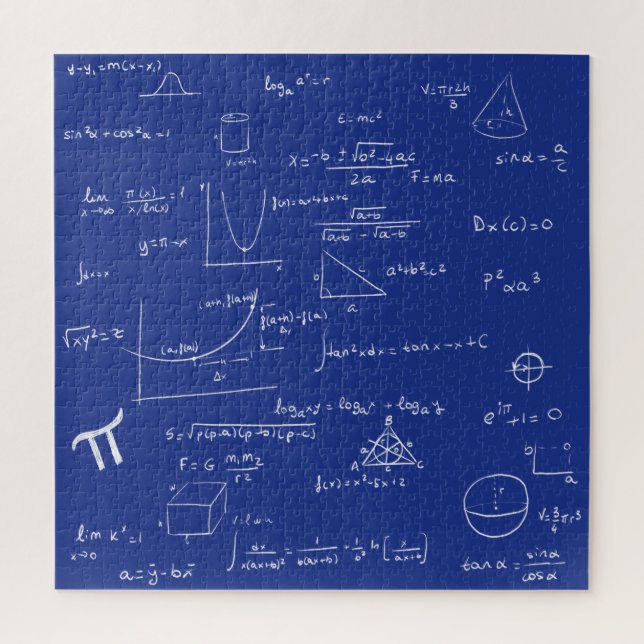 y-y₁=m(x-x₁)
logₐ aʳ=r
V=πr2h/3
h
r
E=mc²
sin²α+cos²α=1
V=πr2h
x=-b±√b²-4ac/2a
F=ma
sinα=a/c
lim x→∞ π(x)/x/ln(x)=1
y
x
f(x)=ax4+bx+c
√a+b/√a+b-√a-b
Dx(c)=0
y=π-x
∫dx=x
b
c
a
a²+b²=c²
P²αa³
(a+h, f(a+h))
f(a+h)-f(a)
Δy
√xy²=z
(a,f(a))
h
Δx
∫tan²xdx=tanx-x+C
logₐxy=logₐx+logₐy
e^iπ+1=0
π
S=√p(p-a)(p-b)(p-c)
B
a
b
A
c
C
b
0
a
F=G m₁m₂/r2
f(x)=x²-5x+2
r
w
l
V=lwh
V=3/4πr³
lim x→0 kˣ=1
∫dx/x(ax+b)²=1/b(ax+b)+1/b² ln(x/ax+b)
tanα=sinα/cosα
a=ȳ-bx̄